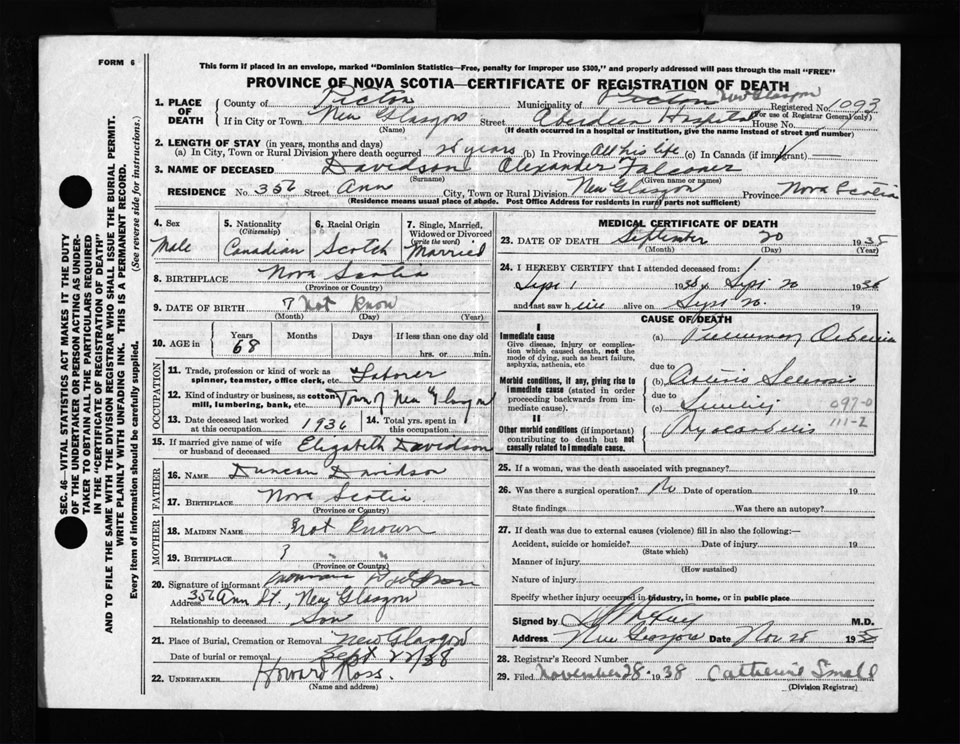 FORM 6
This form if placed in an envelope, marked "Dominion Statistics—Free, penalty for improper use $300," and properly addressed will pass through the mail "FREE"
PROVINCE OF NOVA SCOTIA—CERTIFICATE OF REGISTRATION OF DEATH
1. PLACE OF DEATH
County of Pictou Municipality of Pictou New Glasgow Registered No. 1093
(For use of Registrar General only)
If in City or Town New Glasgow Street Aberdeen Hospital House No.
(Name) (If death occurred in a hospital or institution, give the name instead of street and number)
2. LENGTH OF STAY (in years, months and days)
(a) In City, Town or Rural Division where death occurred 28 years (b) In Province All his life (c) In Canada (if immigrant)
3. NAME OF DECEASED Davidson Alexander Falconer
(Surname) (Given name or names)
RESIDENCE No. 356 Street Ann City, Town or Rural Division New Glasgow Province Nova Scotia
(Residence means usual place of abode. Post Office Address for residents in rural parts not sufficient)
4. Sex Male
5. Nationality (Citizenship) Canadian
6. Racial Origin Scotch
7. Single, Married, Widowed or Divorced (write the word) Married
8. BIRTHPLACE Nova Scotia
(Province or Country)
9. DATE OF BIRTH ? not know
(Month) (Day) (Year)
10. AGE in Years Months Days If less than one day old
68 hrs. or min.
OCCUPATION
11. Trade, profession or kind of work as spinner, teamster, office clerk, etc. Laborer
12. Kind of industry or business, as cotton mill, lumbering, bank, etc. Town of New Glasgow
13. Date deceased last worked at this occupation 1936
14. Total yrs. spent in this occupation
15. If married give name of wife or husband of deceased Elizabeth Davidson
FATHER
16. NAME Duncan Davidson
17. BIRTHPLACE Nova Scotia
(Province or Country)
MOTHER
18. MAIDEN NAME not known
19. BIRTHPLACE ? " "
(Province or Country)
20. Signature of informant
Address 356 Ann St., New Glasgow
Relationship to deceased Son
21. Place of Burial, Cremation or Removal New Glasgow
Date of burial or removal Sept 22/38
22. UNDERTAKER Howard Ross.
(Name and address)
MEDICAL CERTIFICATE OF DEATH
23. DATE OF DEATH September 20 1938
(Month) (Day) (Year)
24. I HEREBY CERTIFY that I attended deceased from:
Sept 1 1938 to Sept 20 1938
and last saw h alive on Sept 20. 19
CAUSE OF DEATH
I
Immediate cause
Give disease, injury or complication which caused death, not the mode of dying, such as heart failure, asphyxia, asthenia, etc
(a) Pulmonary Oedema
due to
Morbid conditions, if any, giving rise to immediate cause (stated in order proceeding backwards from immediate cause).
(b) Arterio Sclerosis
due to
(c) Senility 097-0
111-2
II
Other morbid conditions (if important) contributing to death but not causally related to immediate cause.
Myocarditis
25. If a woman, was the death associated with pregnancy?
26. Was there a surgical operation? No Date of operation 19
State findings Was there an autopsy?
27. If death was due to external causes (violence) fill in also the following:—
Accident, suicide or homicide? Date of injury 19
(State which)
Manner of injury
(How sustained)
Nature of injury
Specify whether injury occurred in industry, in home, or in public place
Signed by M.D.
Address New Glasgow Date Nov 28 1938
28. Registrar's Record Number
29. Filed November 28 - 1938 Catherine Small
(Division Registrar)
SEC. 46—VITAL STATISTICS ACT MAKES IT THE DUTY
OF THE UNDERTAKER OR PERSON ACTING AS UNDER-
TAKER TO OBTAIN ALL THE PARTICULARS REQUIRED
IN THE "CERTIFICATE OF REGISTRATION OF DEATH"
AND TO FILE THE SAME WITH THE DIVISION REGISTRAR WHO SHALL ISSUE THE BURIAL PERMIT.
WRITE PLAINLY WITH UNFADING INK. THIS IS A PERMANENT RECORD.
Every item of information should be carefully supplied. (See reverse side for instructions.)